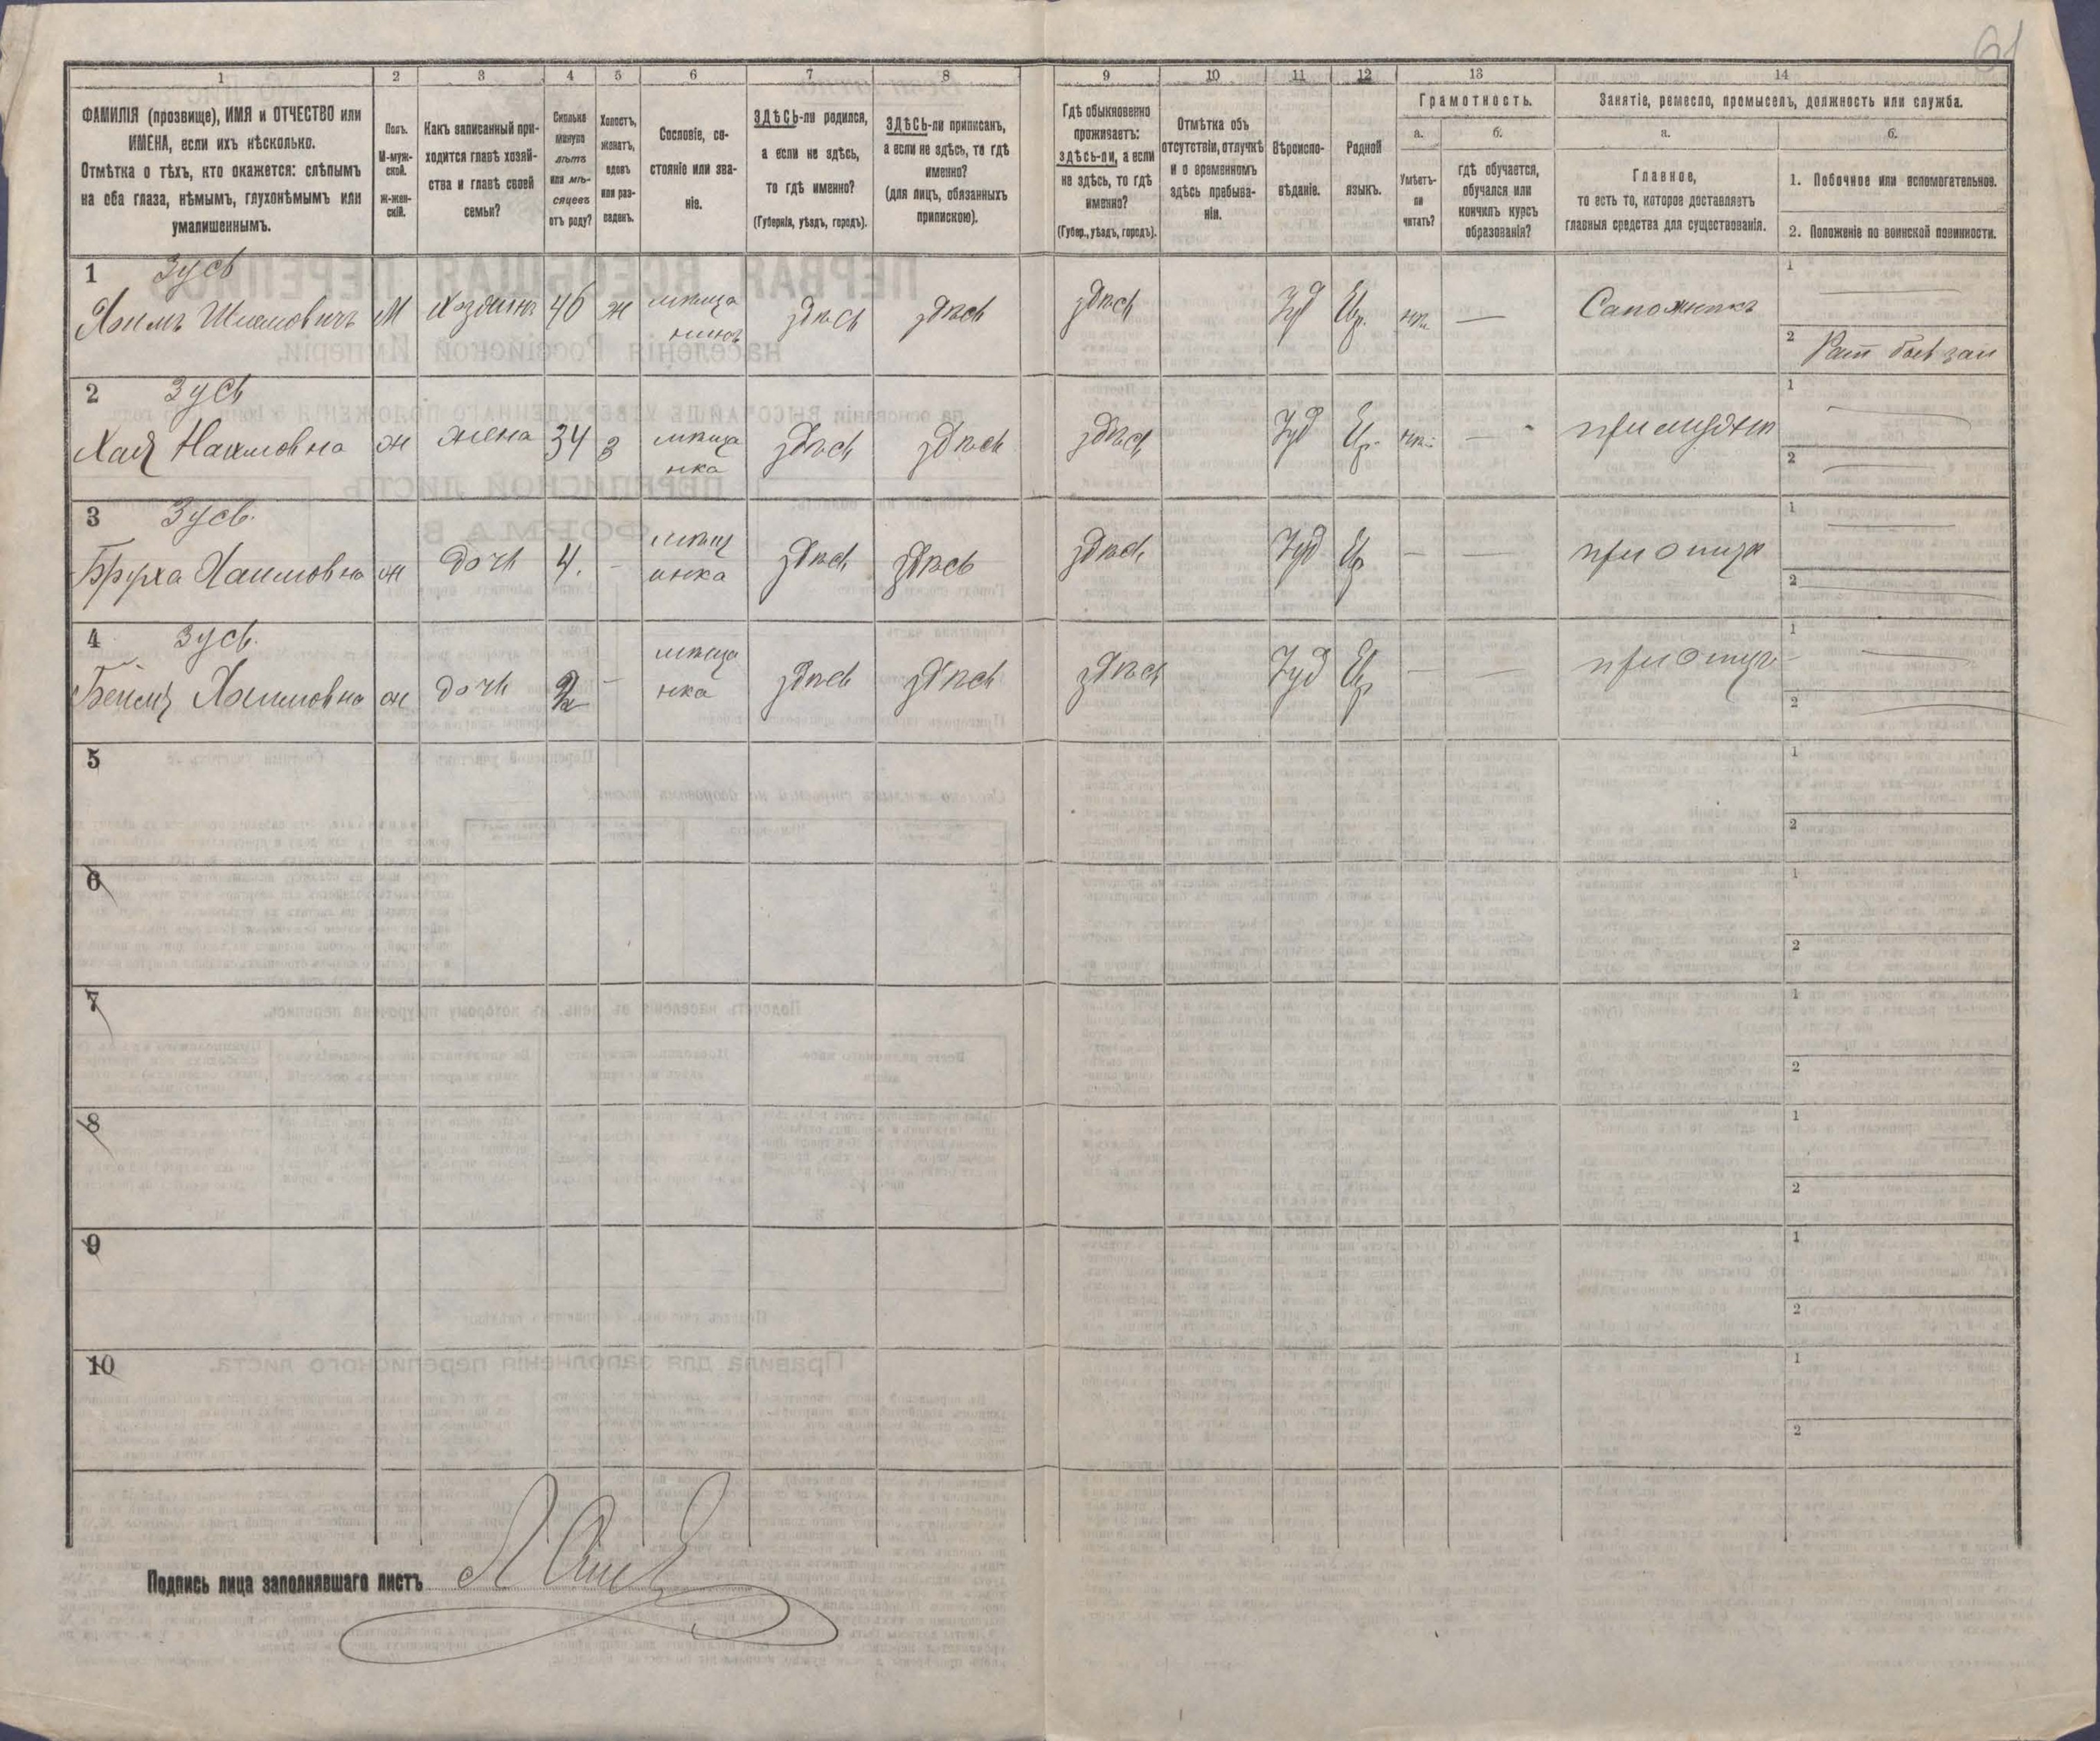 61
1 2 3 4 5 6 7 8 9 10 11 12 13 14
ФАМИЛІЯ (прозвище), ИМЯ и ОТЧЕСТВО или
ИМЕНА, если ихъ нѣсколько.
Отмѣтка о тѣхъ, кто окажется: слѣпымъ
на оба глаза, нѣмымъ, глухонѣмымъ или
умалишеннымъ.
Полъ.
М-муж-
ской.
Ж-жен-
скій.
Какъ записанный при-
ходится главѣ хозяй-
ства и главѣ своей
семьи?
Сколько
минуло
лѣтъ
или мѣ-
сяцевъ
отъ роду?
Холостъ,
женатъ,
вдовъ
или раз-
веденъ.
Сословіе, со-
стояніе или зва-
ніе.
ЗДѢСЬ-ли родился,
а если не здѣсь,
то гдѣ именно?
(Губернія, уѣздъ, городъ).
ЗДѢСЬ-ли приписанъ,
а если не здѣсь, то гдѣ
именно?
(для лицъ, обязанныхъ
припискою).
Гдѣ обыкновенно
проживаетъ:
здѣсь-ли, а если
не здѣсь, то гдѣ
именно?
(Губер., уѣздъ, городъ).
Отмѣтка объ
отсутствіи, отлучкѣ
и о временномъ
здѣсь пребыва-
ніи.
Вѣроиспо-
вѣданіе.
Родной
языкъ.
Грамотность.
а.
Умѣетъ-
ли
читать?
б.
гдѣ обучается,
обучался или
кончилъ курсъ
образованія?
Занятіе, ремесло, промыселъ, должность или служба.
а.
Главное,
то есть то, которое доставляетъ
главныя средства для существованія.
б.
1. Побочное или вспомогательное.
2. Положеніе по воинской повинности.
1 Зусь
М Хозяинъ 46 ж мѣща
нинъ здѣсь здѣсь здѣсь Іуд Евр. — Сапожникъ
1
2
2 Зусь
Хая Наимовна ж жена 34 З мѣща
нка здѣсь здѣсь здѣсь Іуд Евр. —
1
2
3 Зусь.
Бруха Хаимовна ж дочь 4. - мѣщ
анка здѣсь здѣсь здѣсь Іуд Евр — — при отцѣ
1
2
4 Зусь.
Хаимовна ж дочь - мѣща
нка здѣсь здѣсь здѣсь Іуд Евр — — при отцѣ
1
2
5
1
2
6
1
2
7
1
2
8
1
2
9
1
2
10
1
2
Подпись лица заполнявшаго листъ